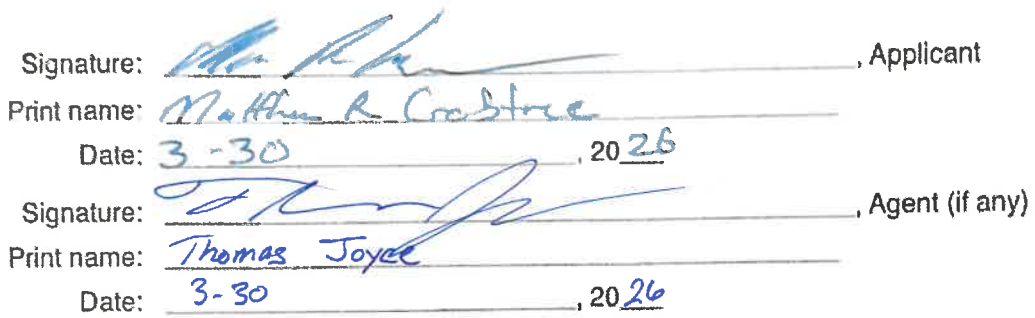 Signature: , Applicant
Print name: Matthew R Crabtree
Date: 3-30, 2026
Signature: , Agent (if any)
Print name: Thomas Joyce
Date: 3-30, 2026